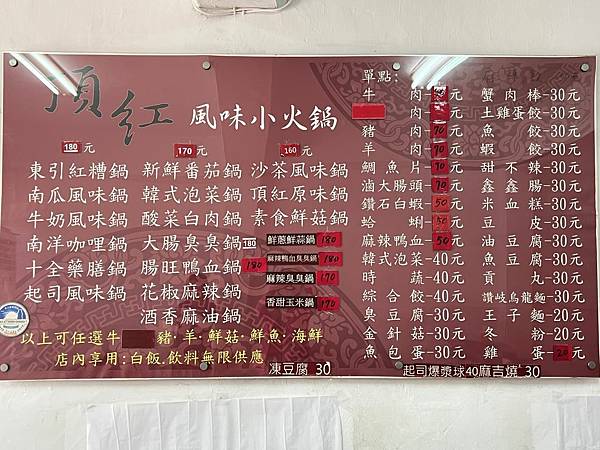 頂紅 風味小火鍋
180 元
東引紅糟鍋
南瓜風味鍋
牛奶風味鍋
南洋咖哩鍋
十全藥膳鍋
起司風味鍋
170 元
新鮮番茄鍋
韓式泡菜鍋
酸菜白肉鍋
大腸臭臭鍋 180
腸旺鴨血鍋 180
花椒麻辣鍋
酒香麻油鍋
160 元
沙茶風味鍋
頂紅原味鍋
素食鮮菇鍋
鮮蔥鮮蒜鍋 180
麻辣鴨血臭臭鍋 180
麻辣臭臭鍋 170
香甜玉米鍋 170
以上可任選牛 豬·羊·鮮菇·鮮魚·海鮮
店內享用:白飯.飲料無限供應
凍豆腐 30
單點:
牛肉- 元
肉- 元
豬肉-70元
羊肉-70元
鯛魚片-70元
滷大腸頭-70元
鑽石白蝦-50元
蛤蜊-50元
麻辣鴨血-50元
韓式泡菜-40元
時蔬-40元
綜合餃-40元
臭豆腐-30元
金針菇-30元
魚包蛋-30元
蟹肉棒-30元
土雞蛋餃-30元
魚餃-30元
蝦餃-30元
甜不辣-30元
鑫鑫腸-30元
米血糕-30元
豆皮-30元
油豆腐-30元
魚豆腐-30元
貢丸-30元
讚岐烏龍麵-30元
王子麵-20元
冬粉-20元
雞蛋-20元
起司爆漿球40麻吉燒 30